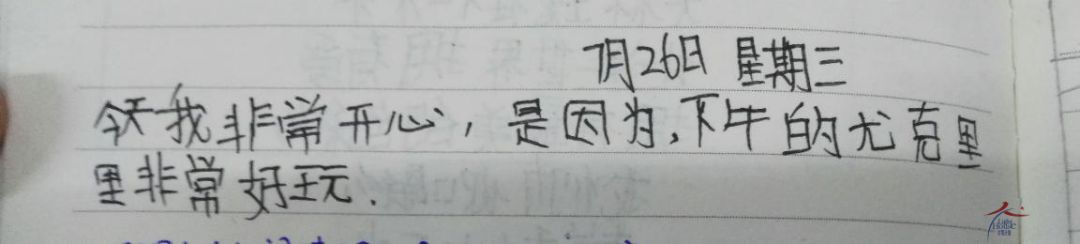 7月26日 星期三
今天我非常开心,是因为,下午的尤克里
里非常好玩.